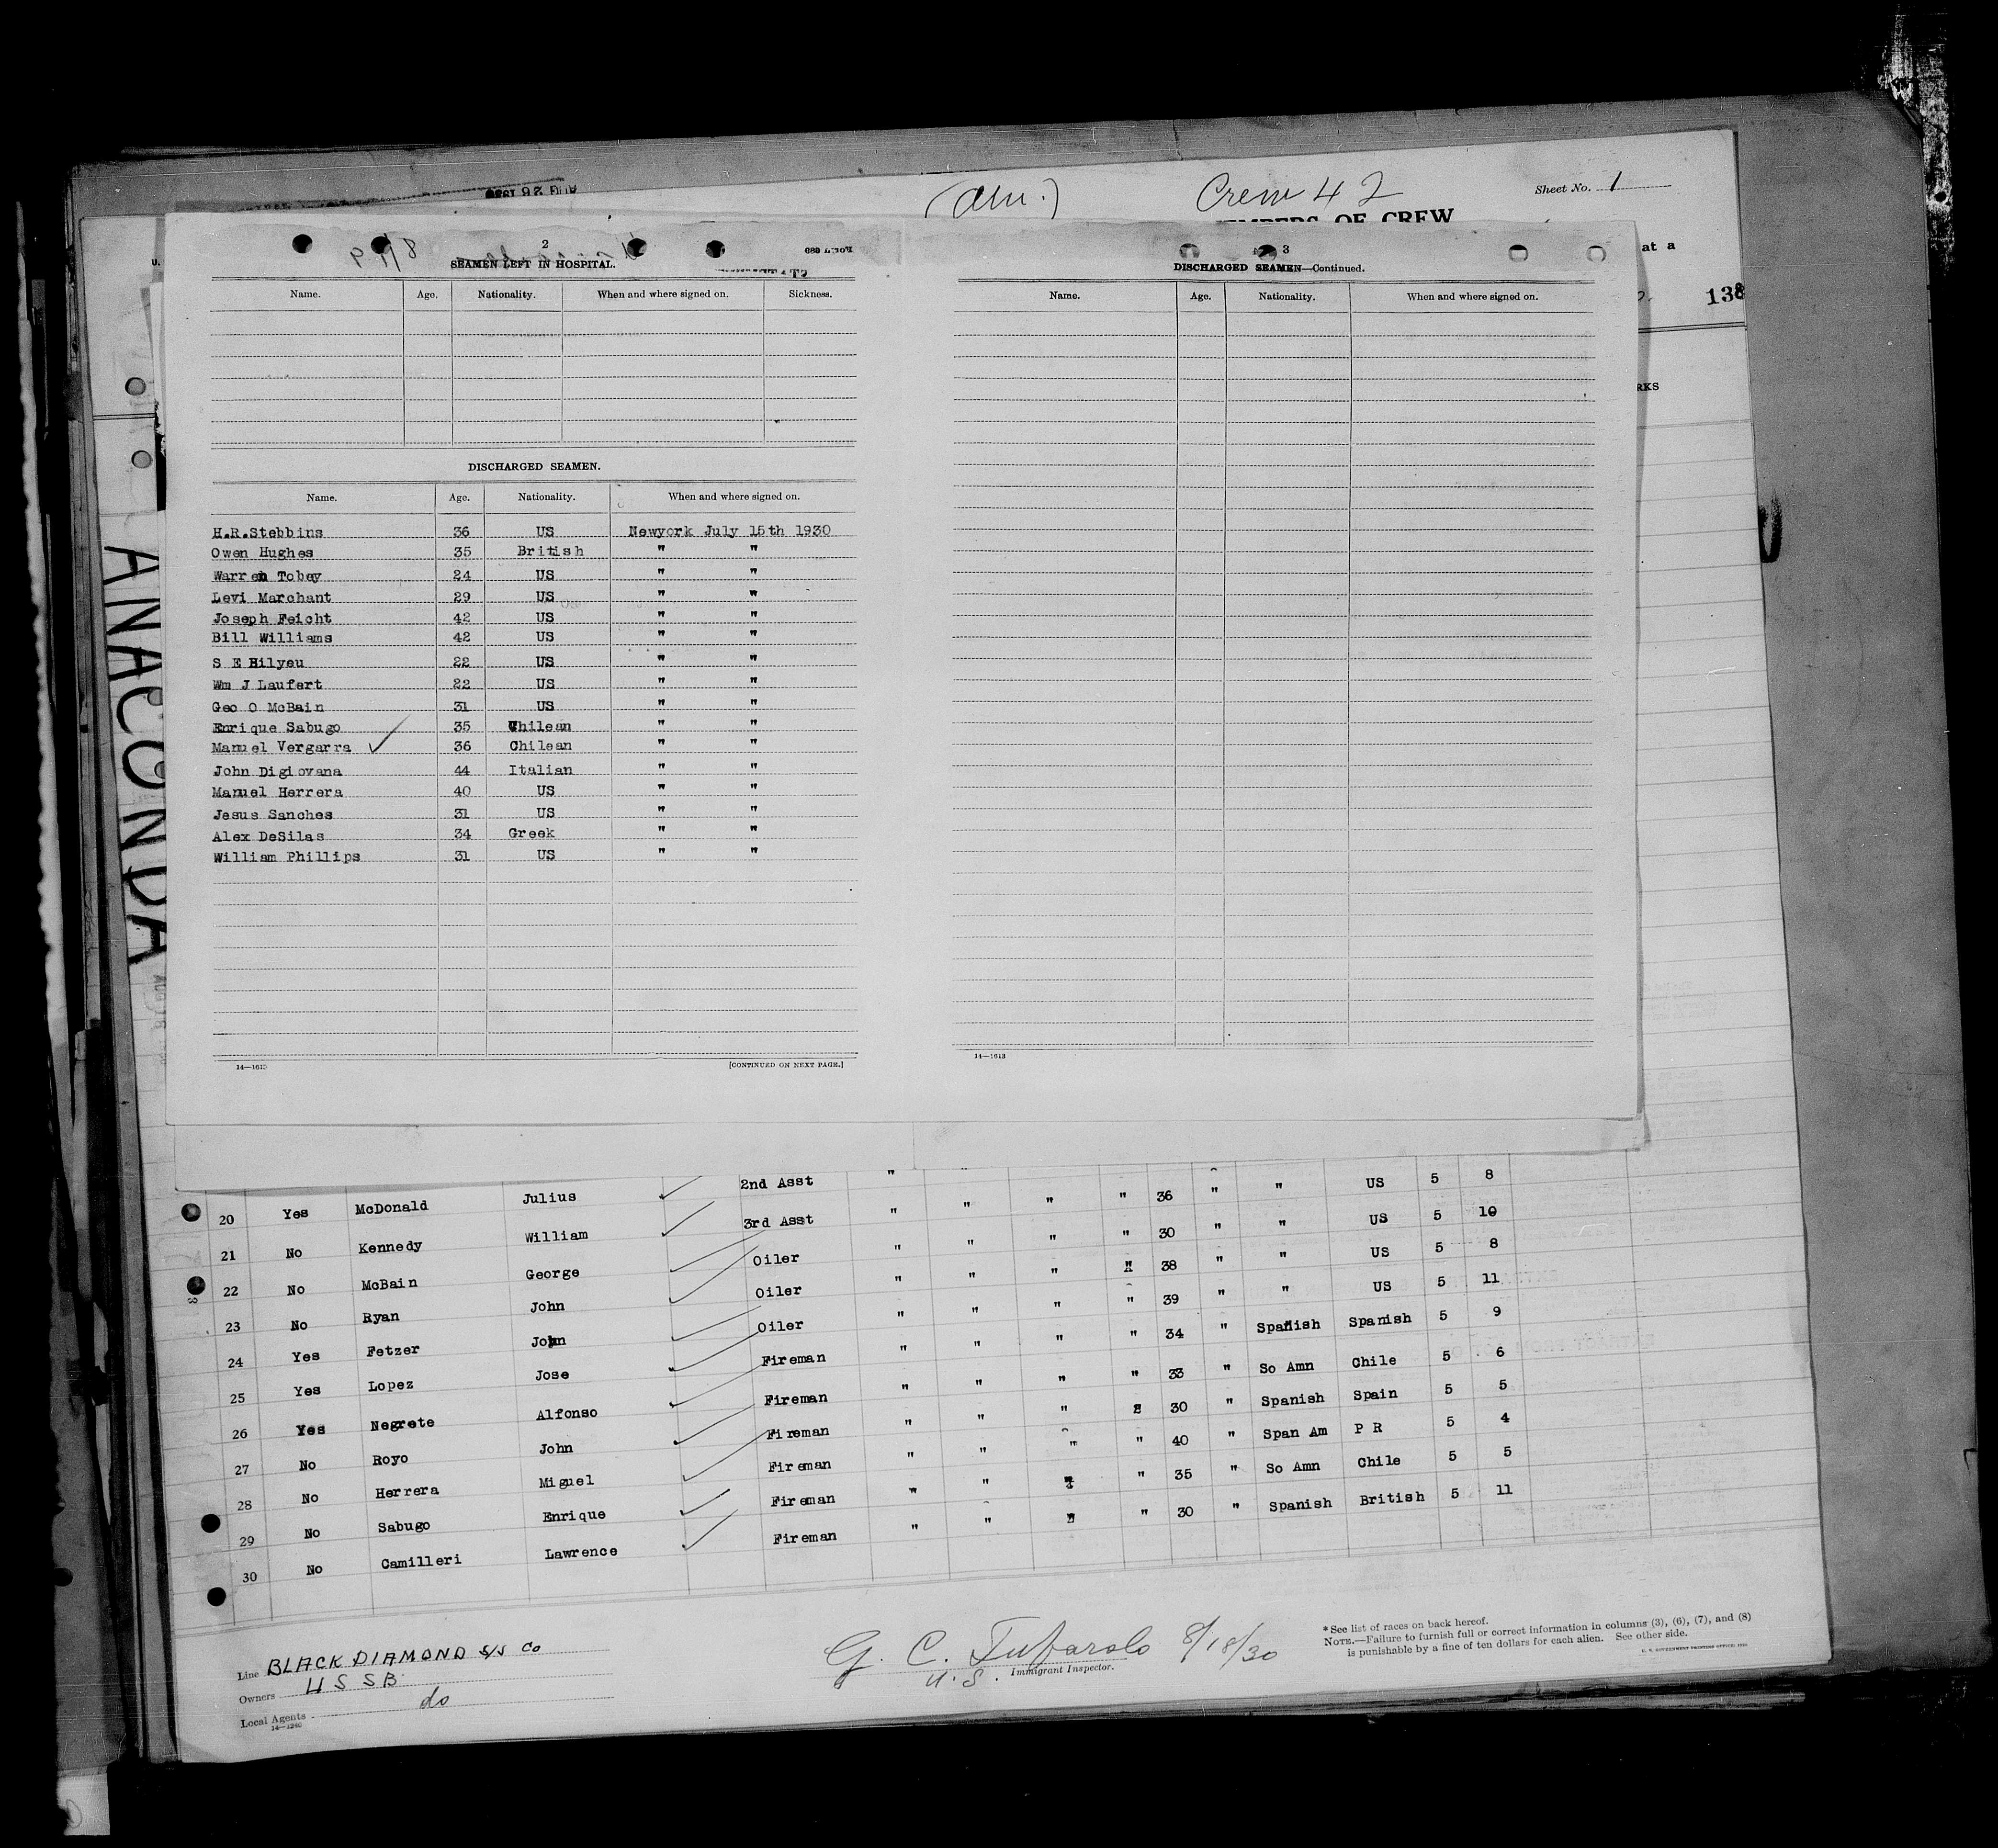 (Am.) Crew 42 Sheet No. 1
MEMBERS OF CREW
at a
138
RKS
ANACONDA
2
SEAMEN LEFT IN HOSPITAL.
Name. Age. Nationality. When and where signed on. Sickness.
DISCHARGED SEAMEN.
Name. Age. Nationality. When and where signed on.
H.R.Stebbins 36 US Newyork July 15th 1930
Owen Hughes 35 British " "
Warren Tobey 24 US " "
Levi Marchant 29 US " "
Joseph Feicht 42 US " "
Bill Williams 42 US " "
S E Bilyeu 22 US " "
Wm J Laufert 22 US " "
Geo O McBain 31 US " "
Enrique Sabugo 35 Chilean " "
Manuel Vergarra 36 Chilean " "
John Digiovana 44 Italian " "
Manuel Herrera 40 US " "
Jesus Sanches 31 US " "
Alex DeSilas 34 Greek " "
William Phillips 31 US " "
14—1613 [CONTINUED ON NEXT PAGE.]
3
DISCHARGED SEAMEN—Continued.
Name. Age. Nationality. When and where signed on.
14—1613
20 Yes McDonald Julius 2nd Asst " " " " 36 " " US 5 8
21 No Kennedy William 3rd Asst " " " " 30 " " US 5 10
22 No McBain George Oiler " " " " 38 " " US 5 8
23 No Ryan John Oiler " " " " 39 " " US 5 11
24 Yes Fetzer John Oiler " " " " 34 " Spanish Spanish 5 9
25 Yes Lopez Jose Fireman " " " " 33 " So Amn Chile 5 6
26 Yes Negrete Alfonso Fireman " " " " 30 " Spanish Spain 5 5
27 No Royo John Fireman " " " " 40 " Span Am P R 5 4
28 No Herrera Miguel Fireman " " " " 35 " So Amn Chile 5 5
29 No Sabugo Enrique Fireman " " " " 30 " Spanish British 5 11
30 No Camilleri Lawrence Fireman " " "
Line BLACK DIAMOND S/S Co
Owners U S S B
Local Agents do
14—1240
G. C. Tufarolo 8/18/30
U.S. Immigrant Inspector.
*See list of races on back hereof.
NOTE.—Failure to furnish full or correct information in columns (3), (6), (7), and (8)
is punishable by a fine of ten dollars for each alien. See other side.